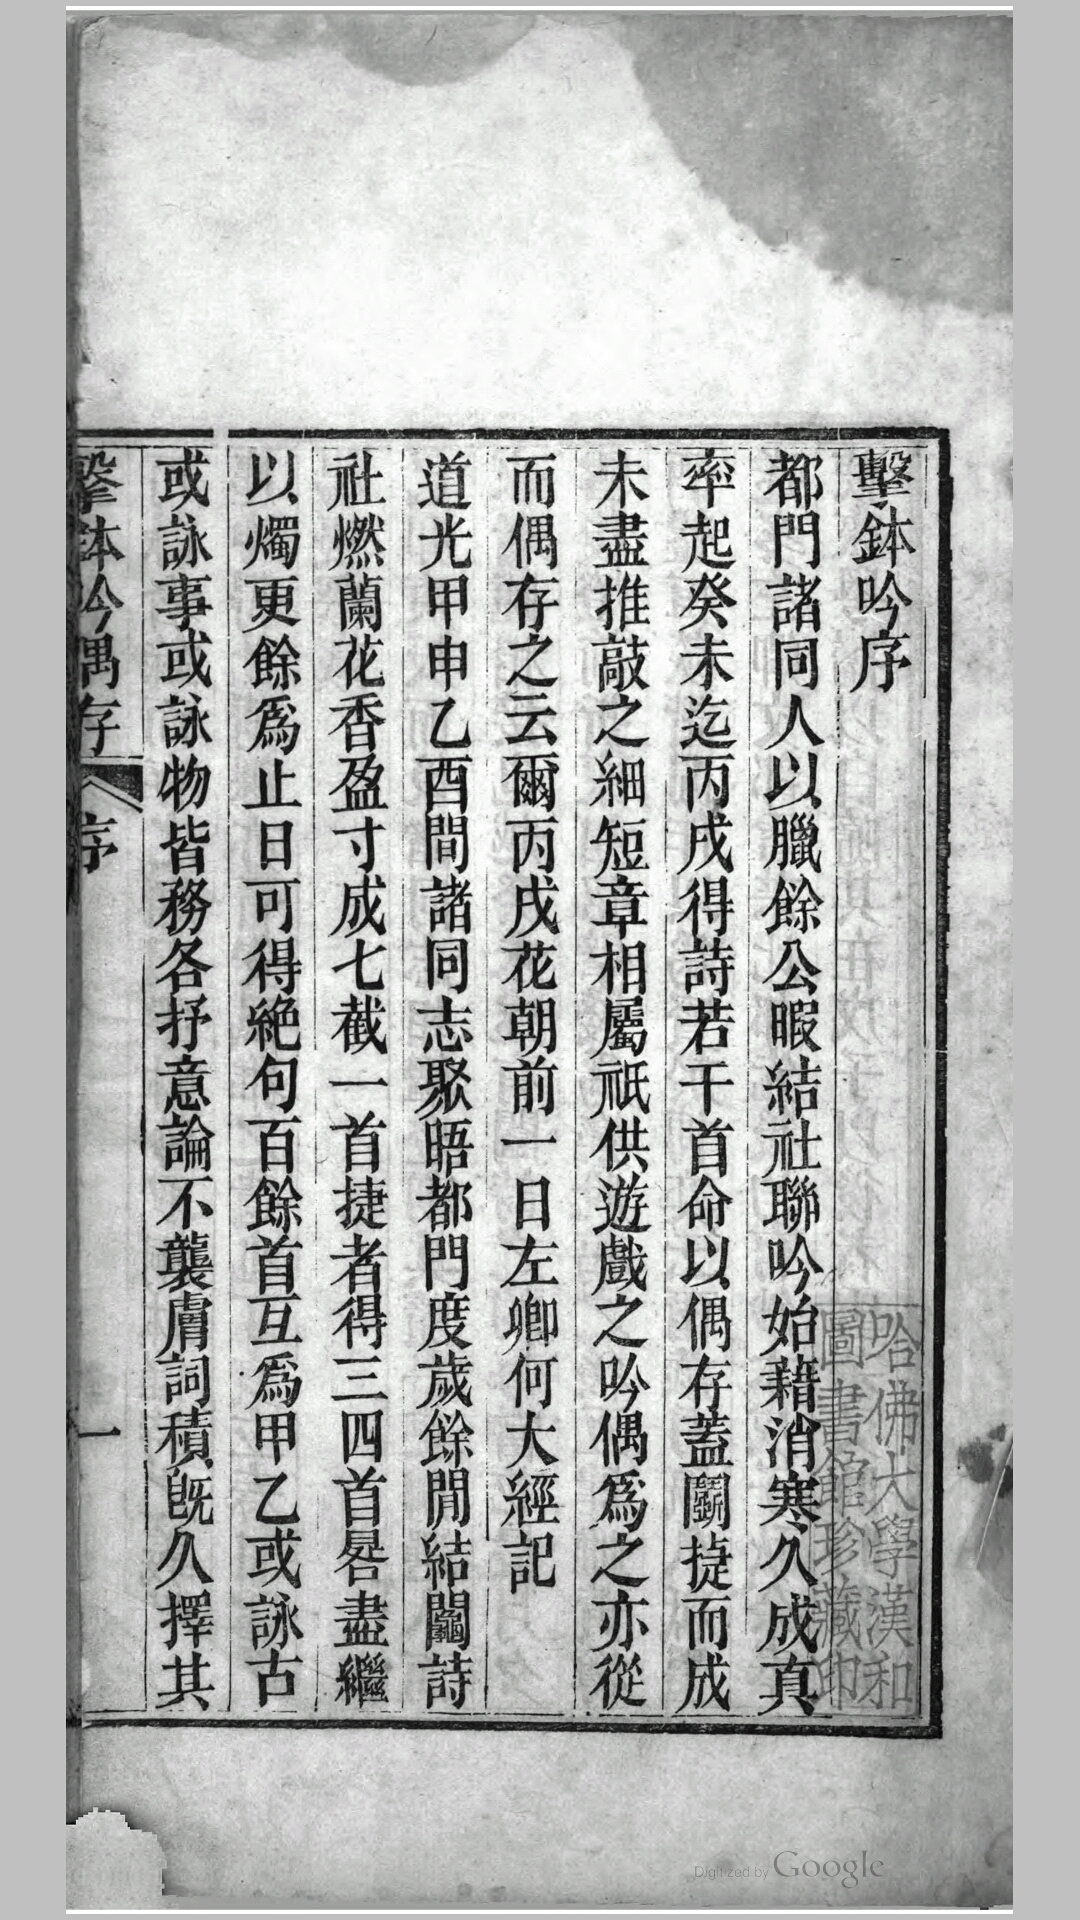 擊鉢吟序
都門諸同人以臘餘公暇結社聯吟始藉消寒久成真
率起癸未迄丙戌得詩若干首命以偶存蓋鬭捷而成
未盡推敲之細短章相屬祇供遊戲之吟偶爲之亦從
而偶存之云爾丙戌花朝前一日左卿何大經記
道光甲申乙酉間諸同志聚晤都門度歲餘閒結鬮詩
社燃蘭花香盈寸成七截一首捷者得三四首晷盡繼
以燭更餘爲止日可得絕句百餘首互爲甲乙或詠古
或詠事或詠物皆務各抒意論不襲膚詞積旣久擇其
擊鉢吟偶存
序
一
哈佛大學漢和
圖書館珍藏印
Digitized by Google